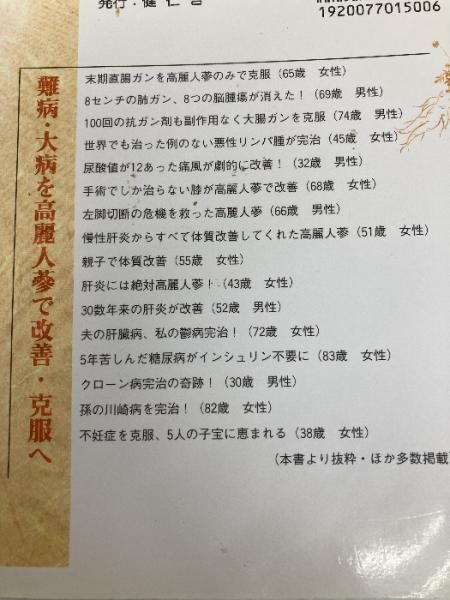 発行・健仁
1920077015006
難病・大病を高麗人蔘で改善・克服へ
末期直腸ガンを高麗人蔘のみで克服（65歳　女性）
8センチの肺ガン、8つの脳腫瘍が消えた！（69歳　男性）
100回の抗ガン剤も副作用なく大腸ガンを克服（74歳　男性）
世界でも治った例のない悪性リンパ腫が完治（45歳　女性）
尿酸値が12あった痛風が劇的に改善！（32歳　男性）
手術でしか治らない膝が高麗人蔘で改善（68歳　女性）
左脚切断の危機を救った高麗人蔘（66歳　男性）
慢性肝炎からすべて体質改善してくれた高麗人蔘（51歳　女性）
親子で体質改善（55歳　女性）
肝炎には絶対高麗人蔘！（43歳　女性）
30数年来の肝炎が改善（52歳　男性）
夫の肝臓病、私の鬱病完治！（72歳　女性）
5年苦しんだ糖尿病がインシュリン不要に（83歳　女性）
クローン病完治の奇跡！（30歳　男性）
孫の川崎病を完治！（82歳　女性）
不妊症を克服、5人の子宝に恵まれる（38歳　女性）
（本書より抜粋・ほか多数掲載）